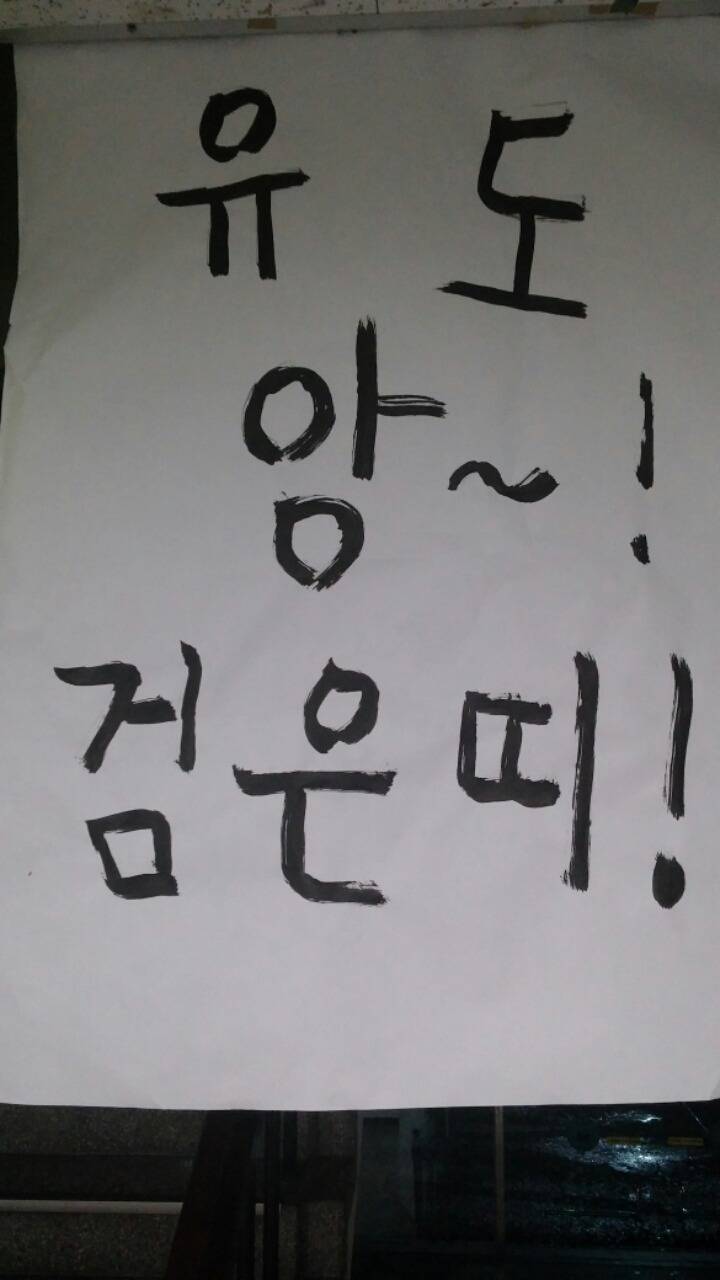 유 도
앙~!
검은띠!